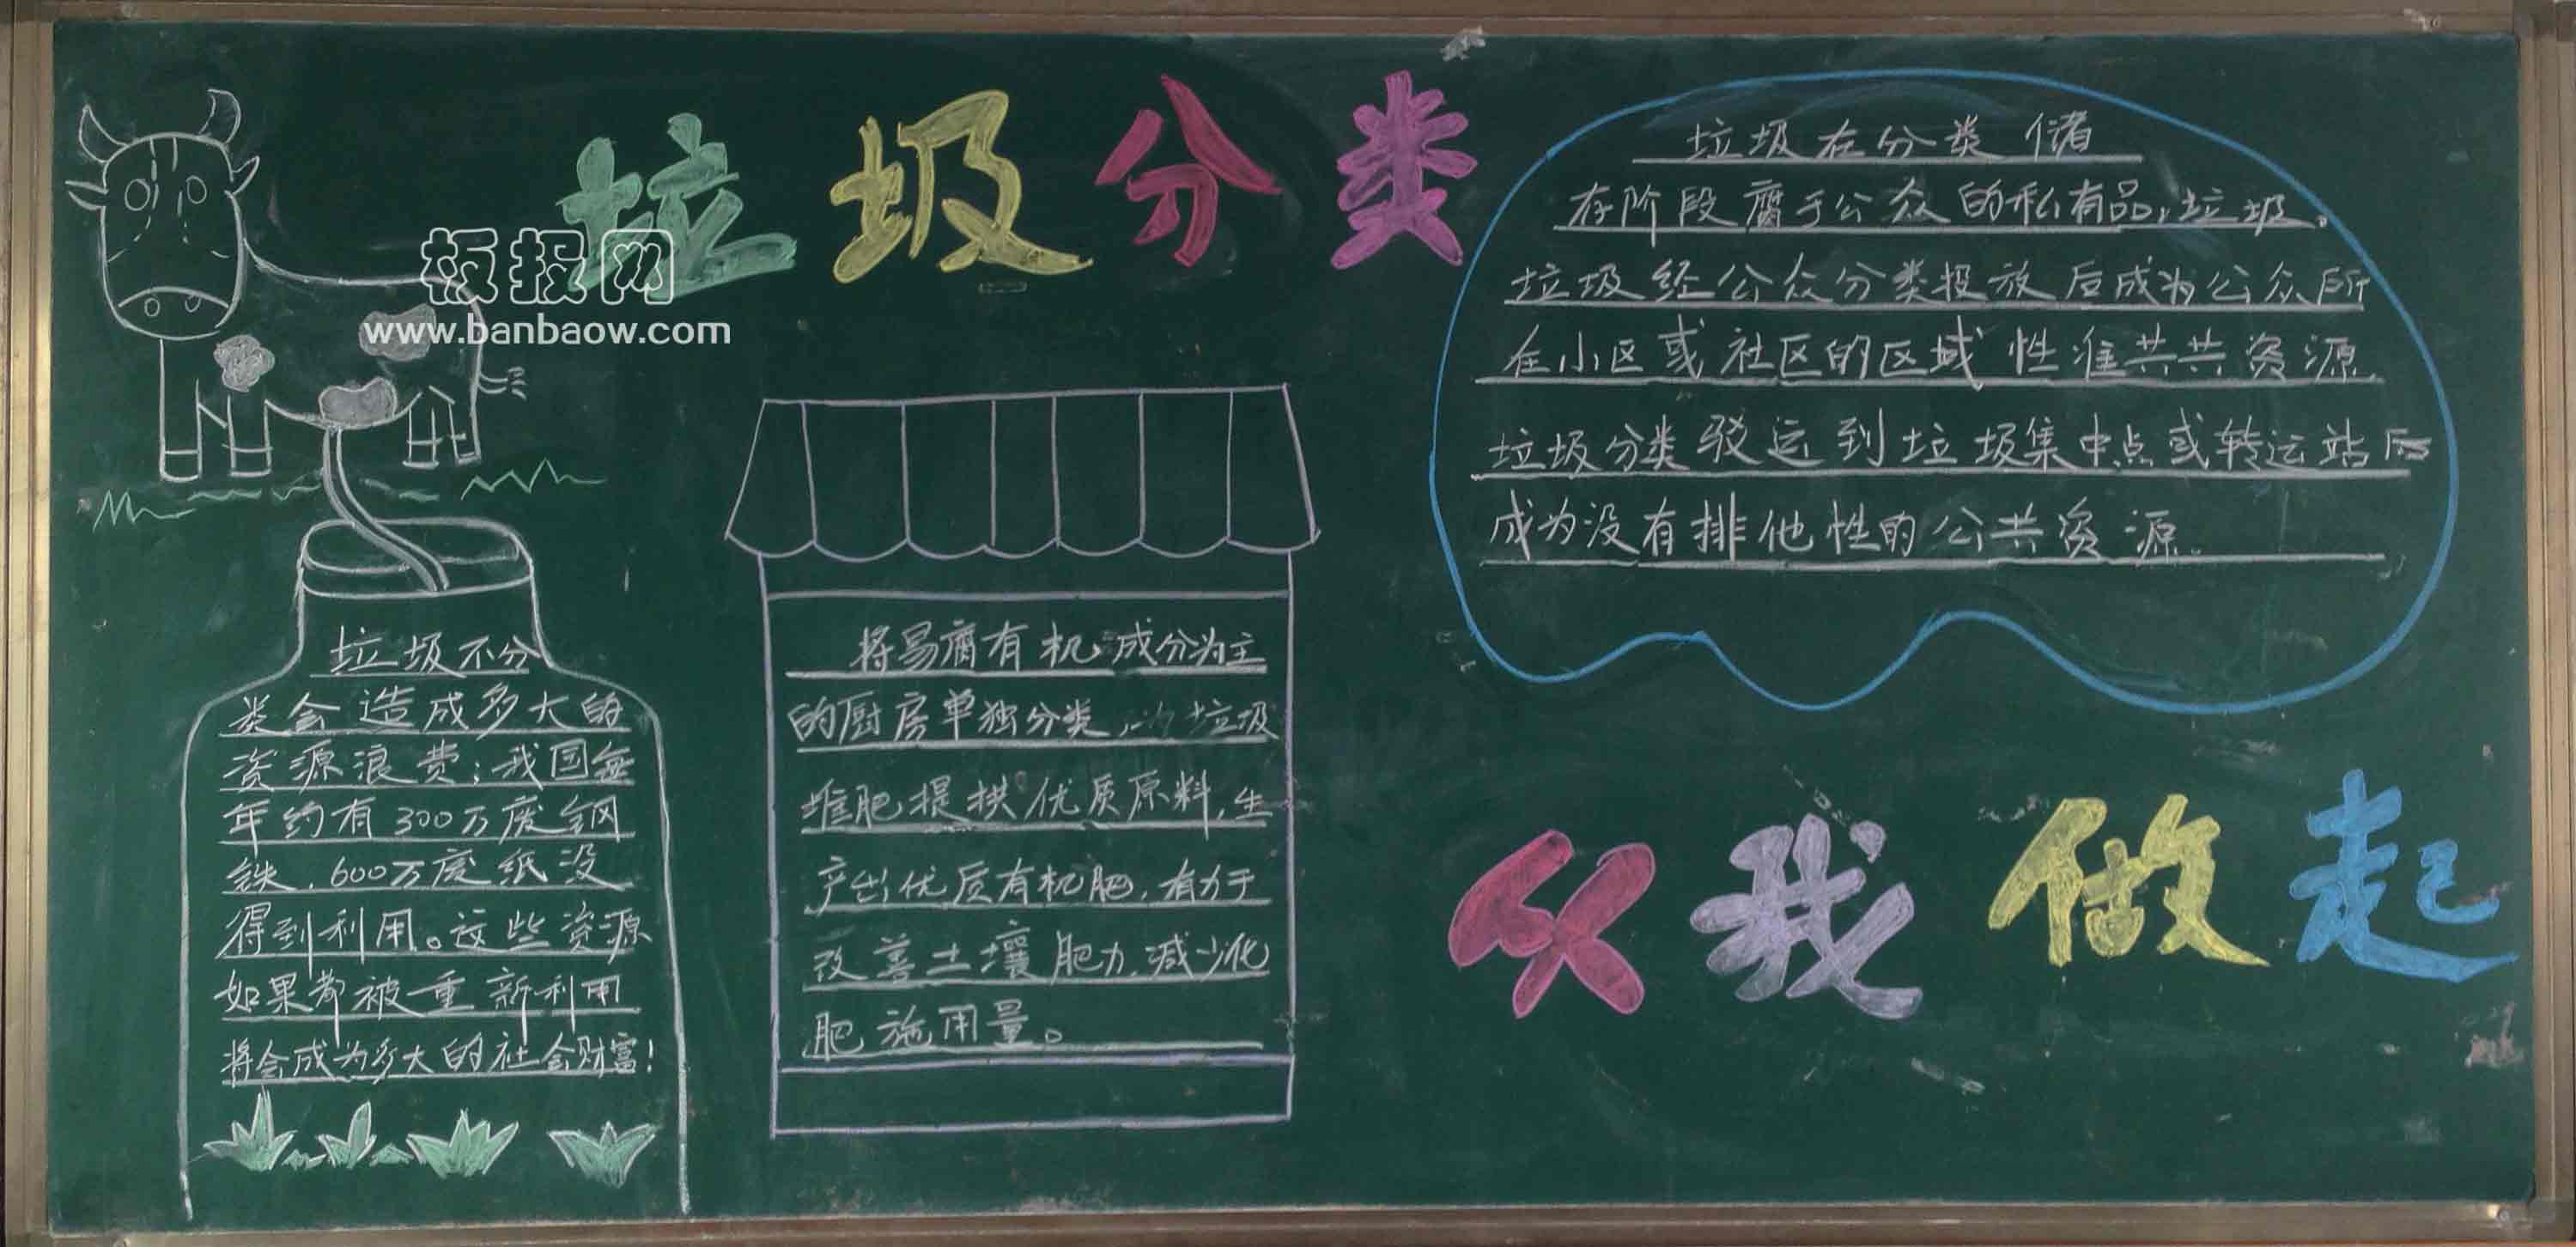 垃圾分类
板报网
www.banbaow.com
垃圾在分类储
存阶段腐于公众的私有品,垃圾
垃圾经公众分类投放后成为公众所
在小区或社区的区域性准共共资源
垃圾分类驳运到垃圾集中点或转运站后
成为没有排他性的公共资源。
垃圾不分
类会造成多大的
资源浪费:我国每
年约有300万废钢
铁,600万废纸没
得到利用。这些资源
如果都被重新利用
将会成为多大的社会财富!
将易腐有机成分为主
的厨房单独分类,为垃圾
堆肥提拱优质原料,生
产出优质有机肥,有力于
改善土壤肥力,减少化
肥施用量。
从我做起